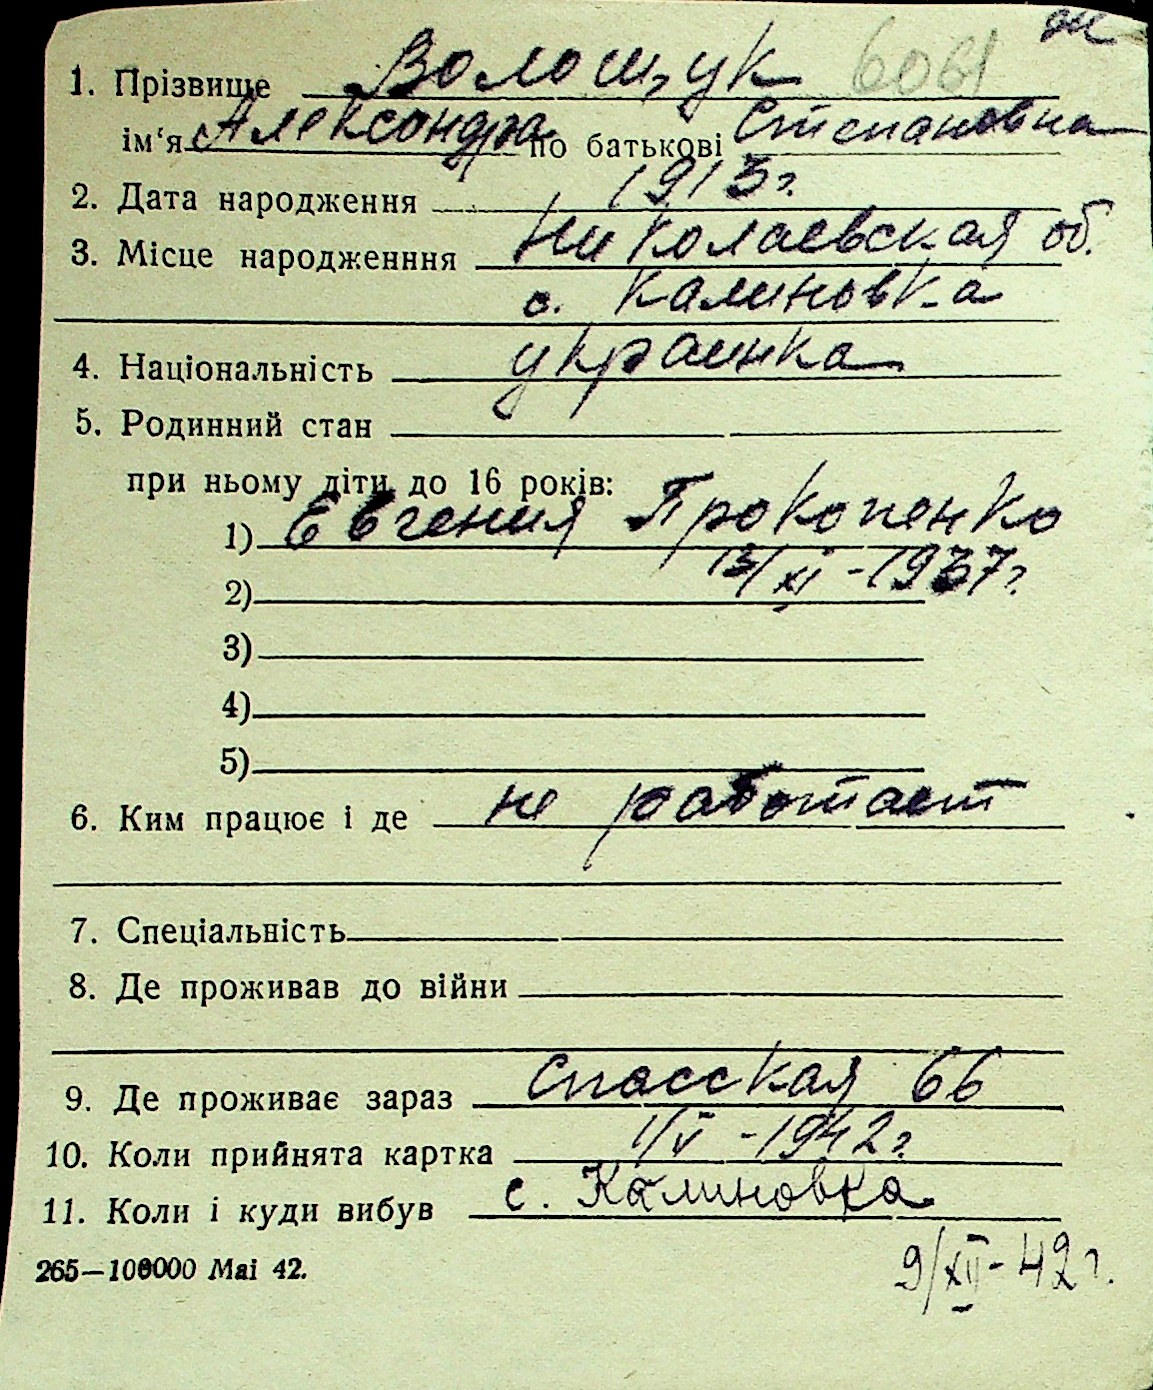 1. Прізвище Волощук 6061
ім'я Александра по батькові Степановна
2. Дата народження 1913 г.
3. Місце народженння Николаевская об.
с. Калиновка
4. Національність украинка
5. Родинний стан
при ньому діти до 16 років:
1) Евгения Прокопенко
2) 13/XI - 1937 г.
3)
4)
5)
6. Ким працює і де не работает
7. Спеціальність
8. Де проживав до війни
9. Де проживає зараз Спасская 66
10. Коли прийнята картка 1/V - 1942 г.
11. Коли і куди вибув с. Калиновка
265—100000 Mai 42. 9/XII - 42 г.